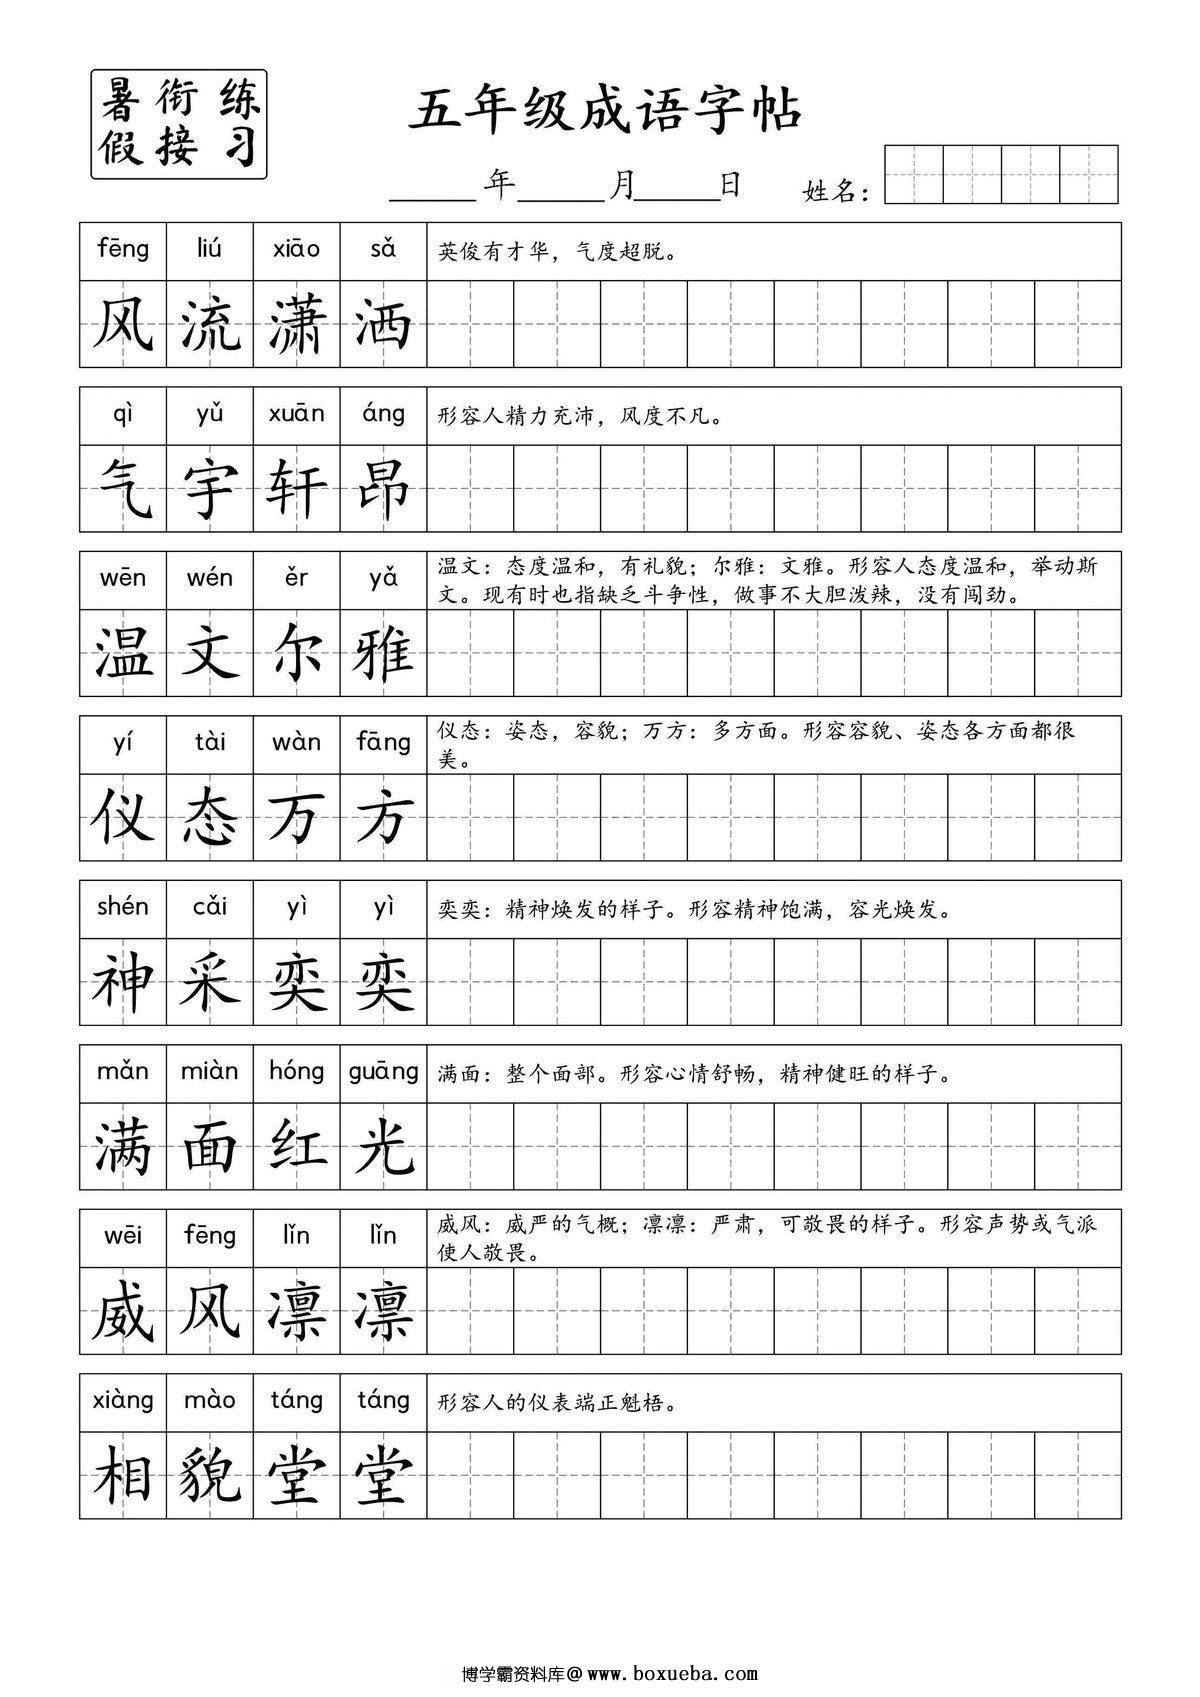 暑 衔 练
假 接 习
五年级成语字帖
______年______月______日 姓名：
fēng liú xiāo sǎ 英俊有才华，气度超脱。
风 流 潇 洒
qì yǔ xuān áng 形容人精力充沛，风度不凡。
气 宇 轩 昂
wēn wén ěr yǎ 温文：态度温和，有礼貌；尔雅：文雅。形容人态度温和，举动斯
文。现有时也指缺乏斗争性，做事不大胆泼辣，没有闯劲。
温 文 尔 雅
yí tài wàn fāng 仪态：姿态，容貌；万方：多方面。形容容貌、姿态各方面都很
美。
仪 态 万 方
shén cǎi yì yì 奕奕：精神焕发的样子。形容精神饱满，容光焕发。
神 采 奕 奕
mǎn miàn hóng guāng 满面：整个面部。形容心情舒畅，精神健旺的样子。
满 面 红 光
wēi fēng lǐn lǐn 威风：威严的气概；凛凛：严肃，可敬畏的样子。形容声势或气派
使人敬畏。
威 风 凛 凛
xiàng mào táng táng 形容人的仪表端正魁梧。
相 貌 堂 堂
博学霸资料库@ www.boxueba.com